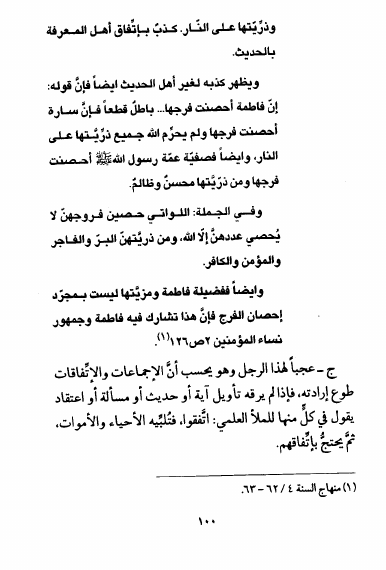 وذرِّيّتها على النّار. كذبٌ بإتِّفاق أهل المعرفة
بالحديث.
ويظهر كذبه لغير أهل الحديث ايضاً فإنَّ قوله:
إنّ فاطمة أحصنت فرجها... باطلٌ قطعاً فإنَّ سارة
أحصنت فرجها ولم يحرِّم الله جميع ذرِّيَّتها على
النار، وايضاً فصفيّة عمّة رسول الله ﷺ أحصنت
فرجها ومن ذرّيَّتها محسنٌ وظالمٌ.
وفي الجملة: اللواتي حصين فروجهنّ لا
يُحصي عددهنَّ إلّا الله، ومن ذريّتهنّ البرّ والفاجر
والمؤمن والكافر.
وايضاً ففضيلة فاطمة ومزيَّتها ليست بمجرّد
إحصان الفرج فإنَّ هذا تشارك فيه فاطمة وجمهور
نساء المؤمنين ٢ص١٢٦(١).
ج ـ عجباً لهذا الرجل وهو يحسب أنَّ الإجماعات والإتِّفاقات
طوع إرادته، فإذا لم يرقه تأويل آية أو حديث أو مسألة أو اعتقاد
يقول في كلٍّ منها للملأ العلمي: اتَّفقوا، فتُلبِّيه الأحياء والأموات،
ثمَّ يحتجُّ بإتِّفاقهم.
(١) منهاج السنة ٤ / ٦٢ – ٦٣.
١٠٠